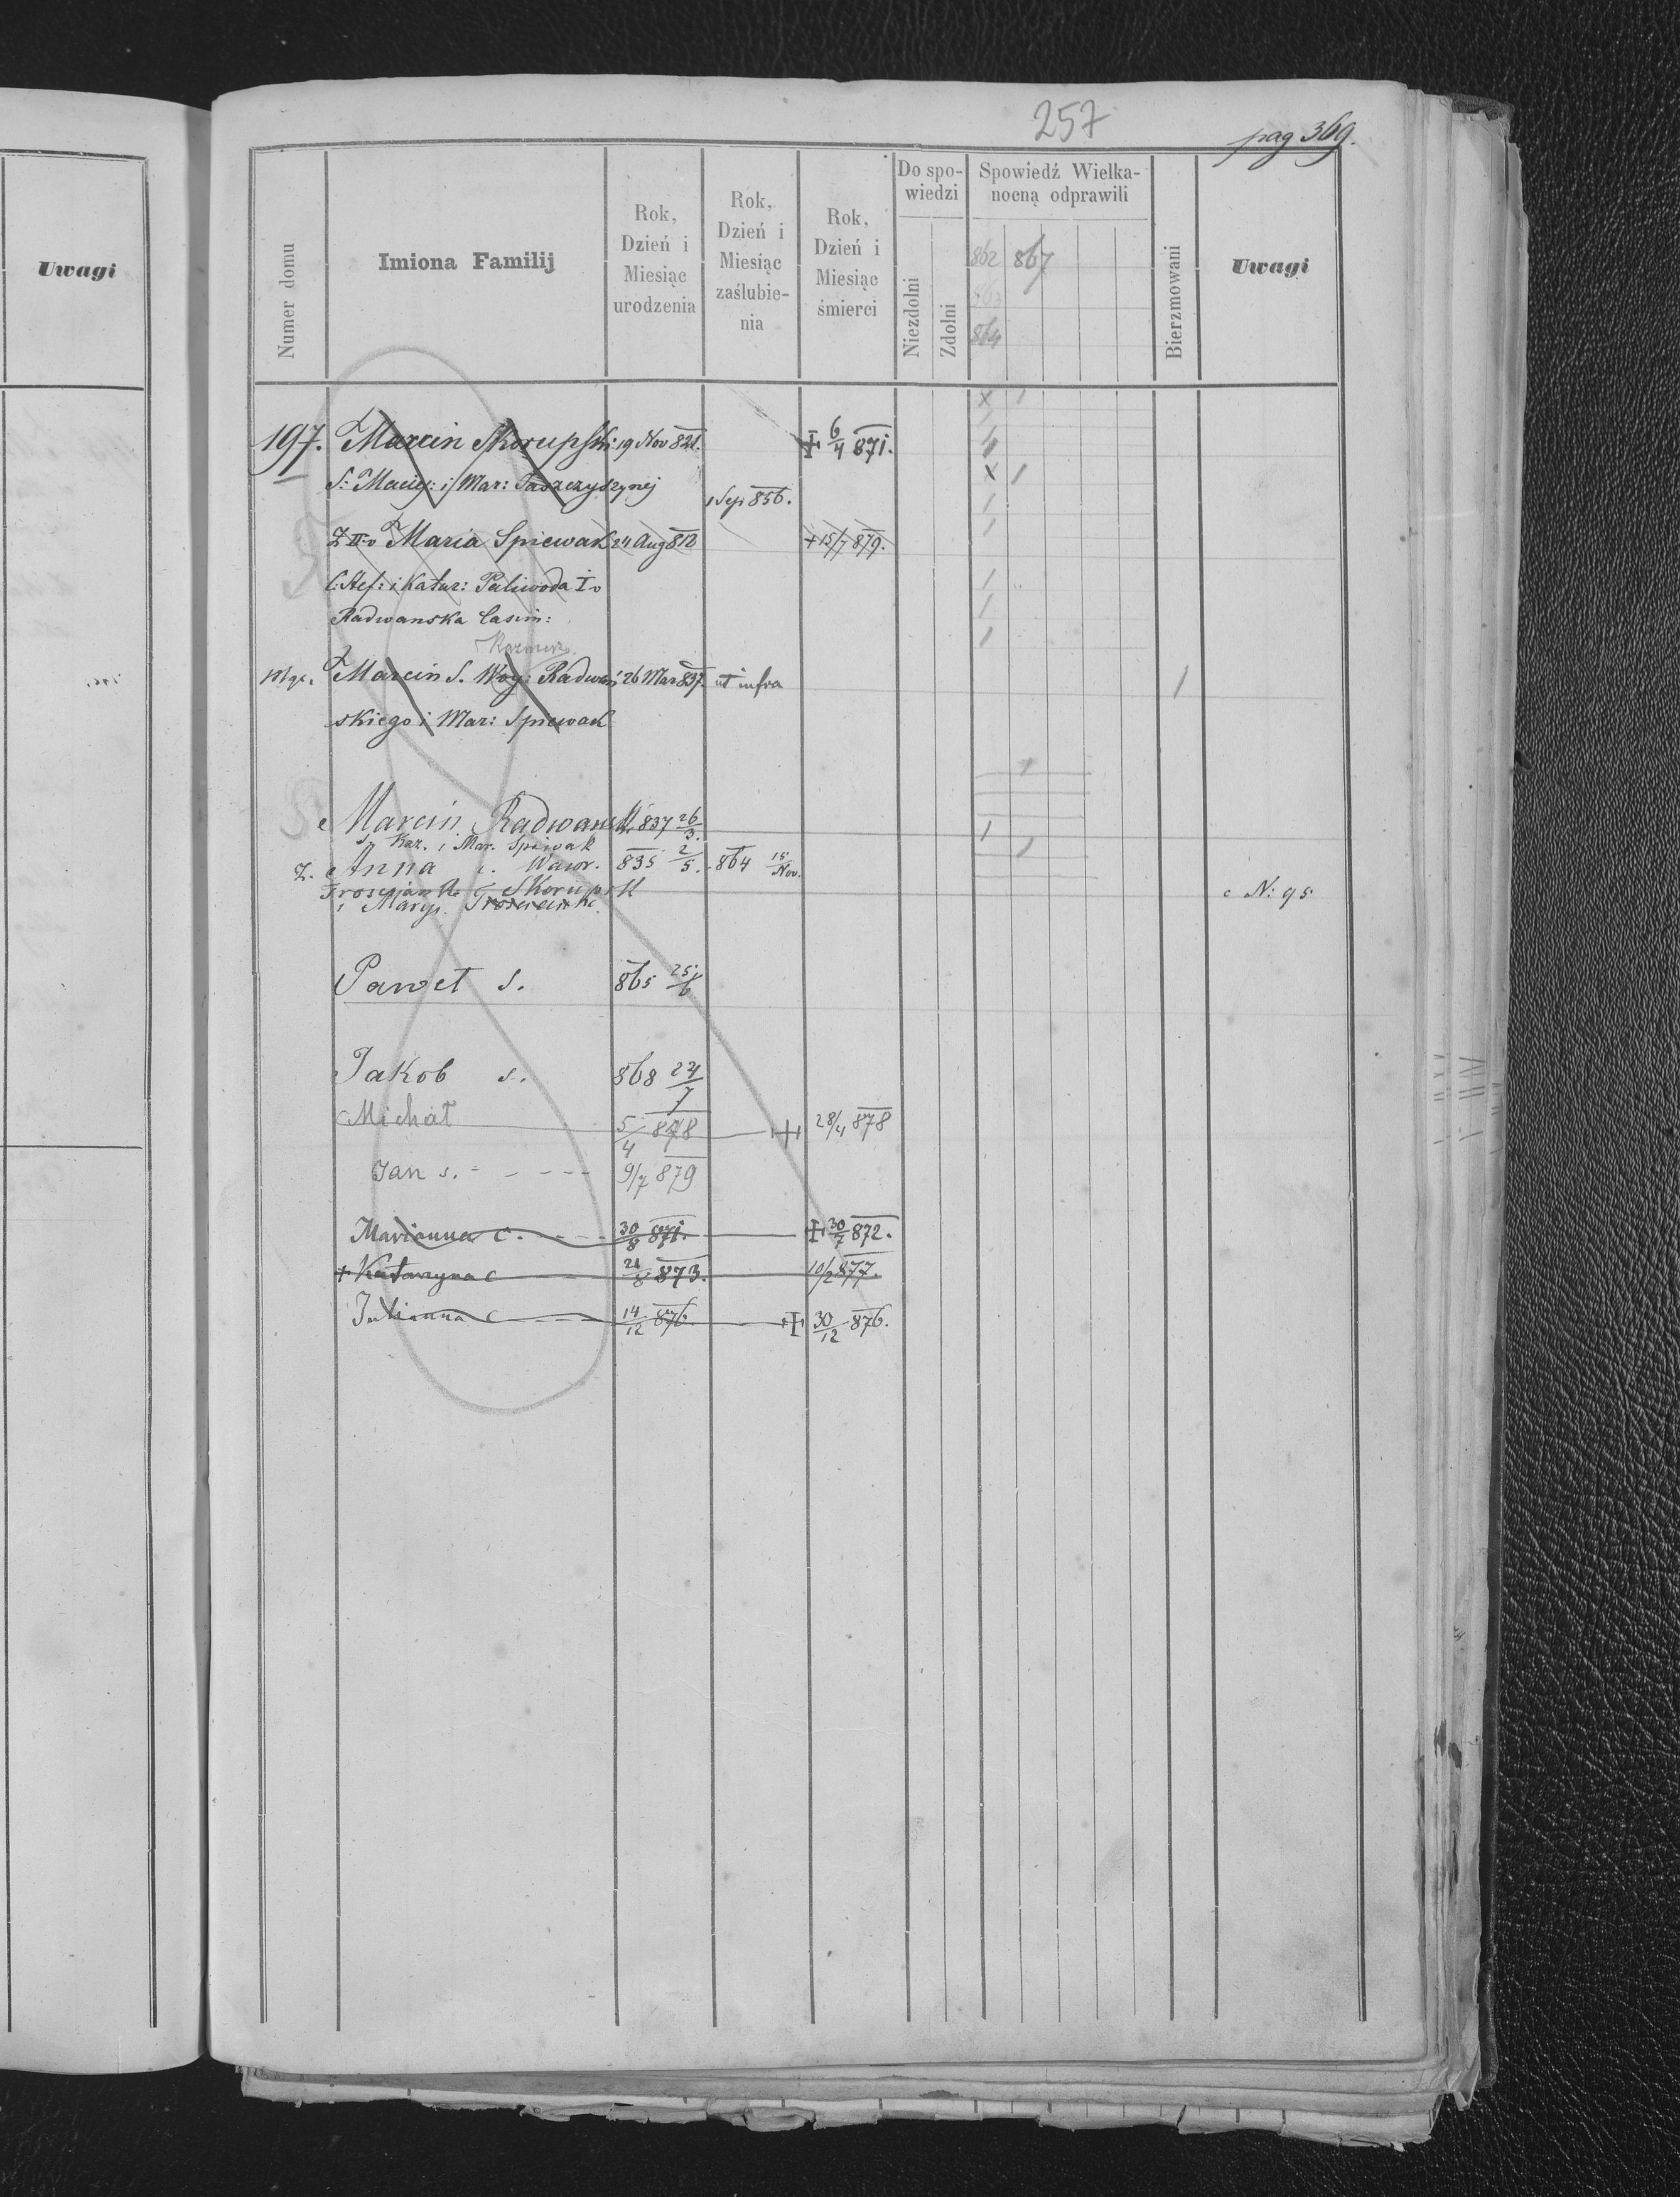 257
pag 369.
Uwagi
Numer domu
Imiona Familij
Rok, Dzień i Miesiąc urodzenia
Rok, Dzień i Miesiąc zaślubienia
Rok, Dzień i Miesiąc śmierci
Do spowiedzi
Niezdolni
Zdolni
Spowiedź Wielkanocną odprawili
862 867
863
864
Bierzmowani
Uwagi
197. Marcin Skorupski 19 Nov 821. 6/4 871.
S: Maciej: i Mar: Taszczyszynej
1 Sep 856.
Ż IIo Maria Spiewak 24 Aug 812 + 15/7 879.
C: Stef: i Katar: Paliwoda Io
Radwanska Casim:
Kazmierz.
Marcin S. Woj: Radwań 26 Mar 837. ut infra
skiego i Mar: Spiewak
Marcin Radwanski 837 26/3.
S. Kaz. i Mar. Spiwak
Z. Anna c. Wawr. 835 2/5. 864 15/Nov.
Skorupski
i Maryi
c N: 95
Paweł S. 865 25/6
Jakob s. 868 24/7
Michał 5/4 878 28/4 878
Jan s. - - - - 9/7 879
Marianna C. - - - 30/8 871. 30/7 872.
+ Katarzyna C 21/8 873. 10/2 877.
Julianna C 14/12 876. 30/12 876.